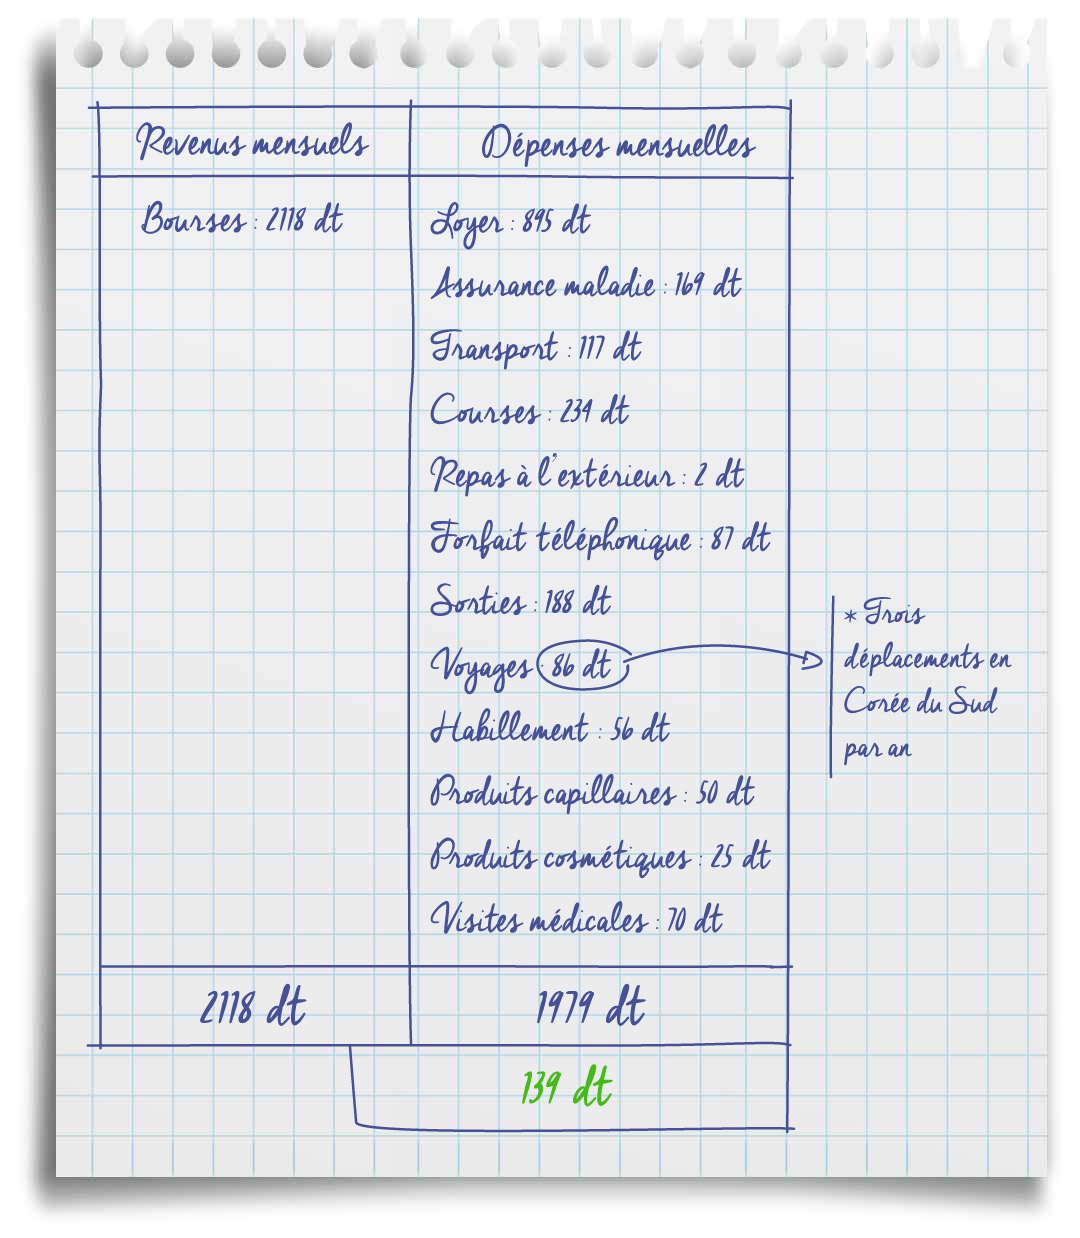 Revenus mensuels
Dépenses mensuelles
Bourses : 2118 dt
Loyer : 895 dt
Assurance maladie : 169 dt
Transport : 117 dt
Courses : 234 dt
Repas à l'extérieur : 2 dt
Forfait téléphonique : 87 dt
Sorties : 188 dt
Voyages : 86 dt
* Trois
déplacements en
Corée du Sud
par an
Habillement : 56 dt
Produits capillaires : 50 dt
Produits cosmétiques : 25 dt
Visites médicales : 70 dt
2118 dt
1979 dt
139 dt